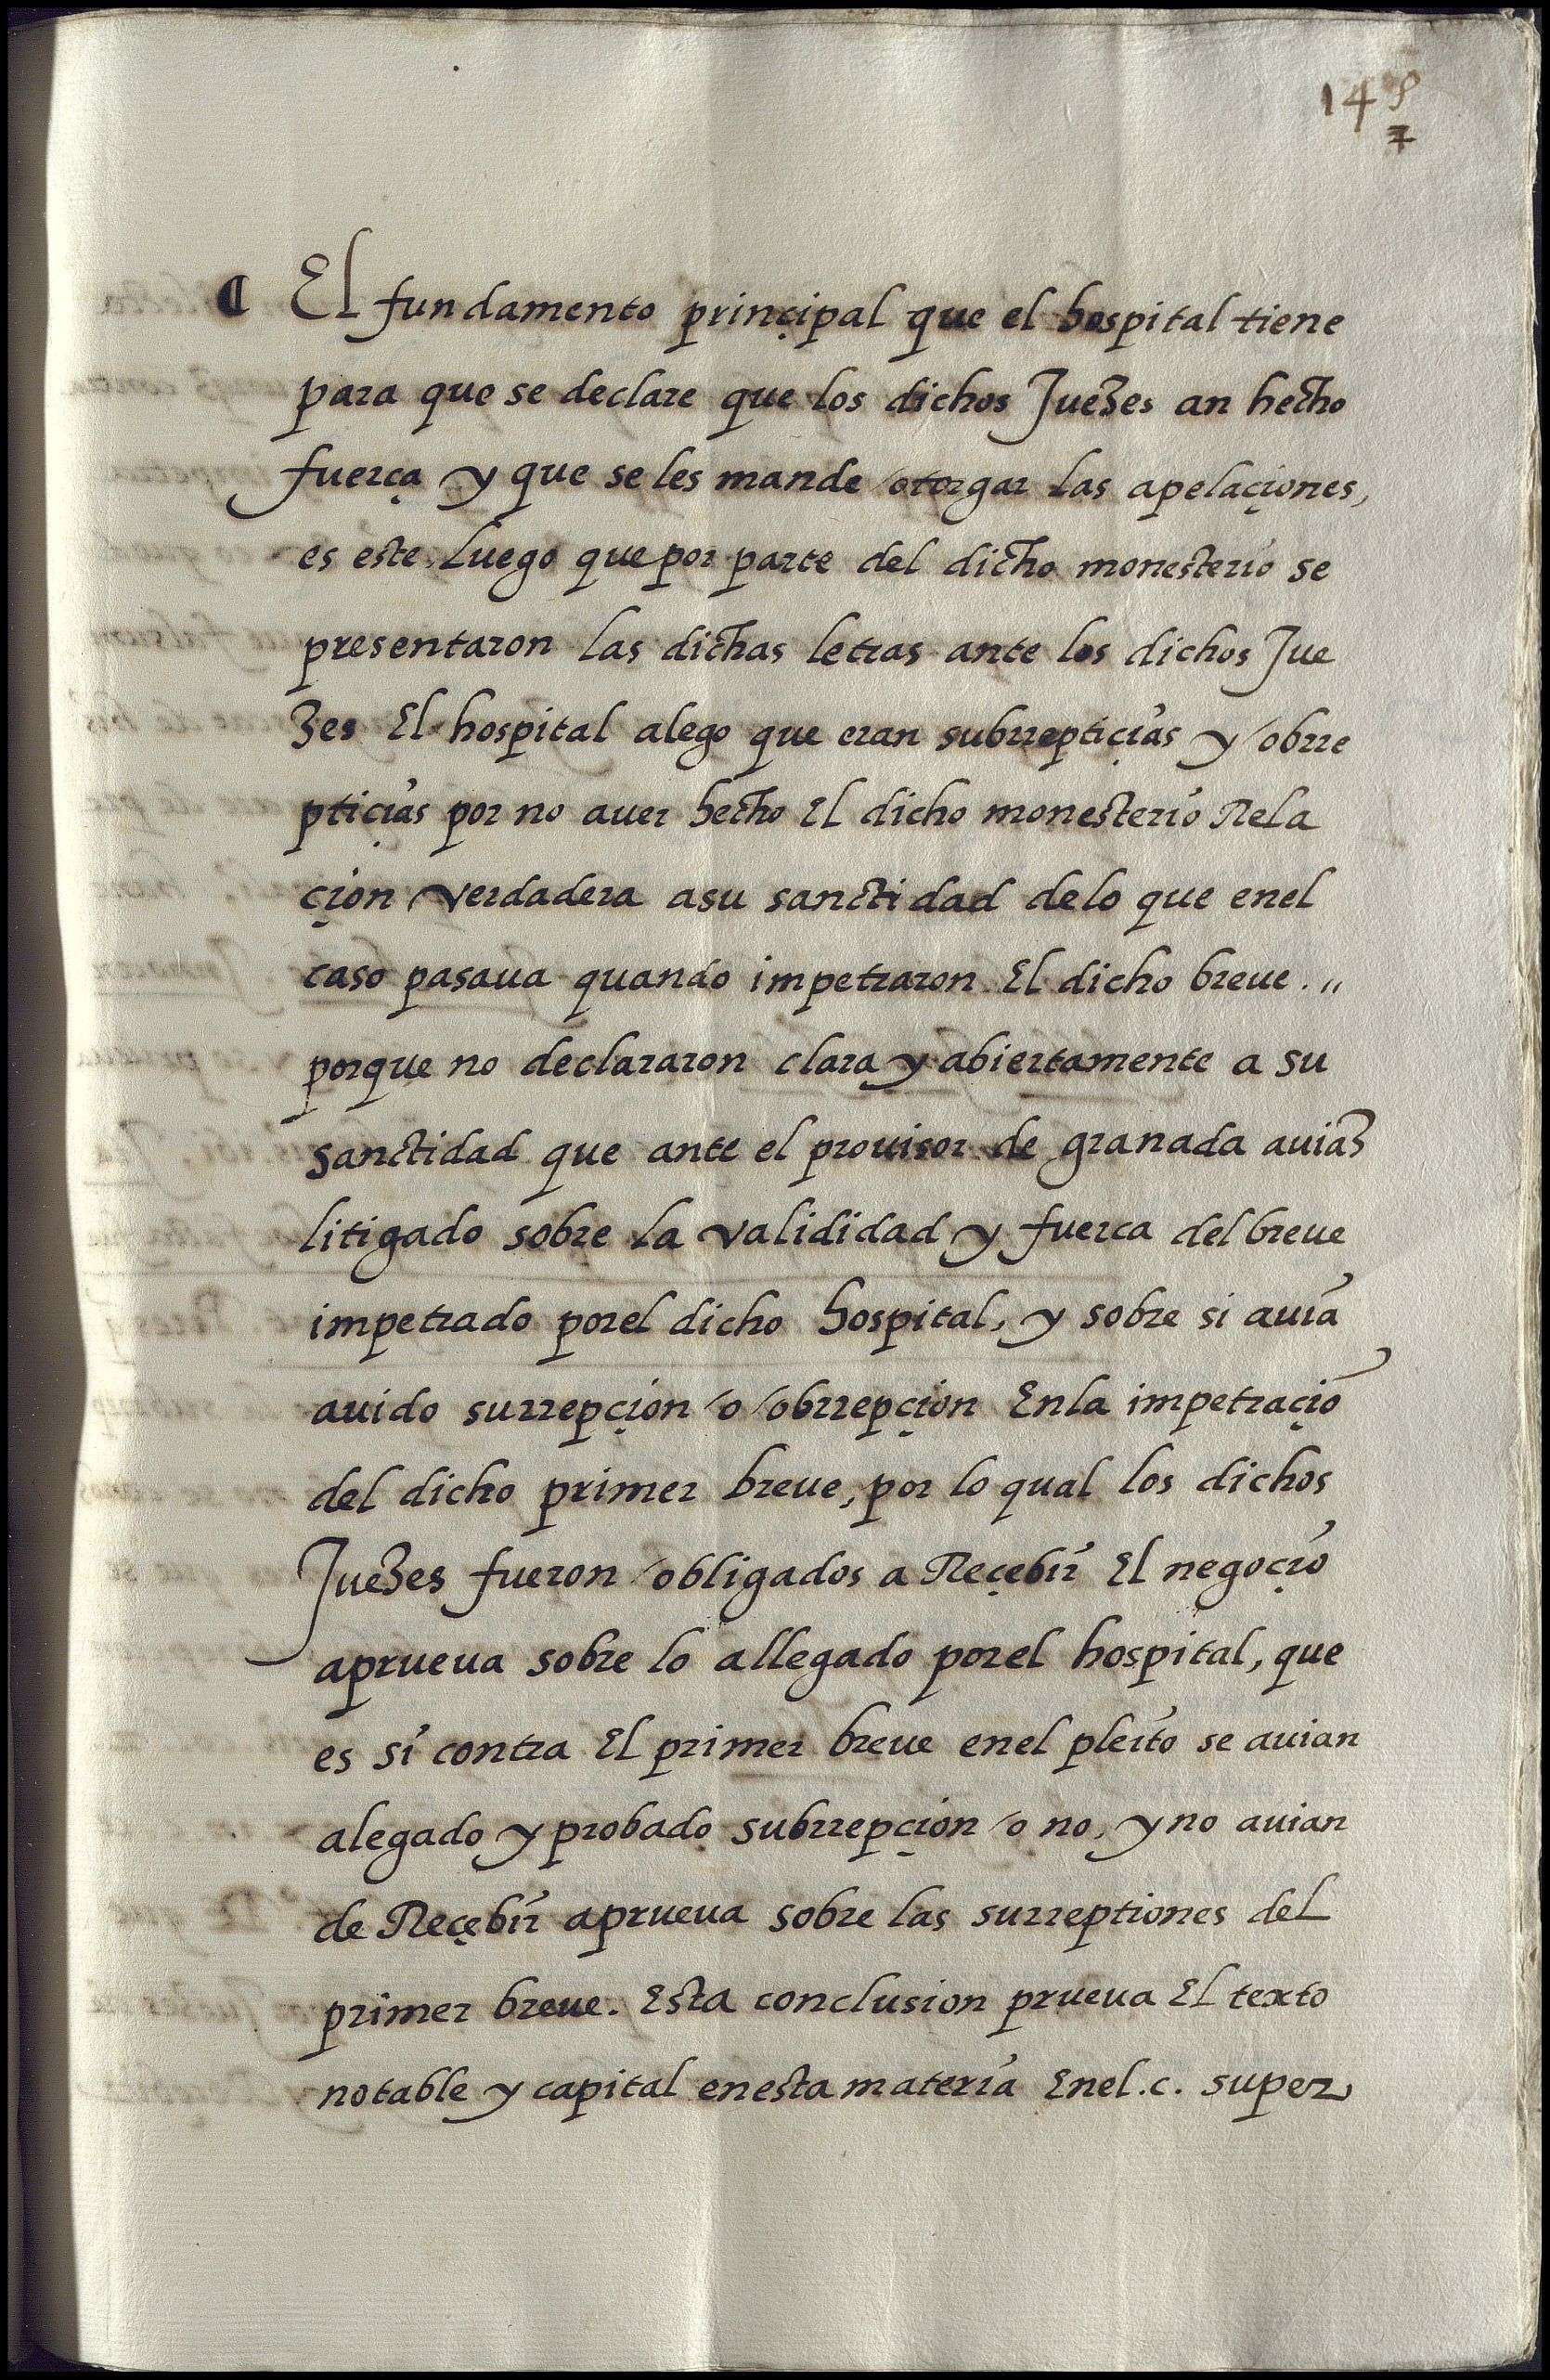 148
7
¶ El fundamento prinçipal que el hospital tiene
para que se declare que los dichos Juezes an hecho
fuerça y que se les mande otorgar las apelaçiones,
es este. luego que por parte del dicho monesterio se
presentaron las dichas letras ante los dichos Jue
zes El hospital alego que eran subrreptiçias y obrre
ptiçias por no auer hecho El dicho monesterio Rela
çion verdadera asu sanctidad delo que enel
caso pasaua quando impetraron El dicho breue. ,,
porque no declararon clara y abiertamente a su
sanctidad que ante el prouisor de granada auiã
litigado sobre la valididad y fuerca del breue
impetrado porel dicho hospital, y sobre si auia
auido surrepçion o obrrepçion Enla impetraçiõ
del dicho primer breue, por lo qual los dichos
Juezes fueron obligados a Reçebir El negoçio
aprueua sobre lo allegado porel hospital, que
es si contra El primer breue enel pleito se auian
alegado y probado subrrepçion o no, y no auian
de Reçebir aprueua sobre las surreptiones del
primer breue. Esta conclusion prueua El texto
notable y capital enesta materia Enel .c. super